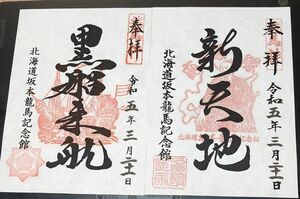 奉拝
令和五年三月二十一日
新天地
北海道坂本龍馬記念館
奉拝
令和五年三月二十一日
黒船来航
北海道坂本龍馬記念館